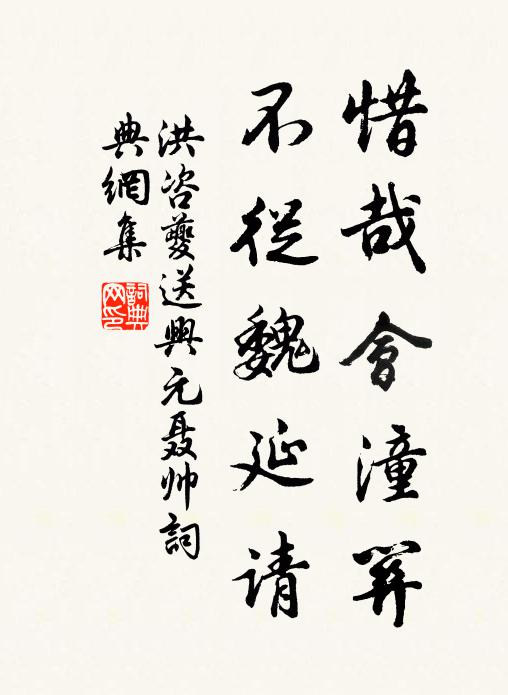 惜哉會潼關
不從魏延请
洪咨夔送興元聂帅詞
典網集
詞典网印